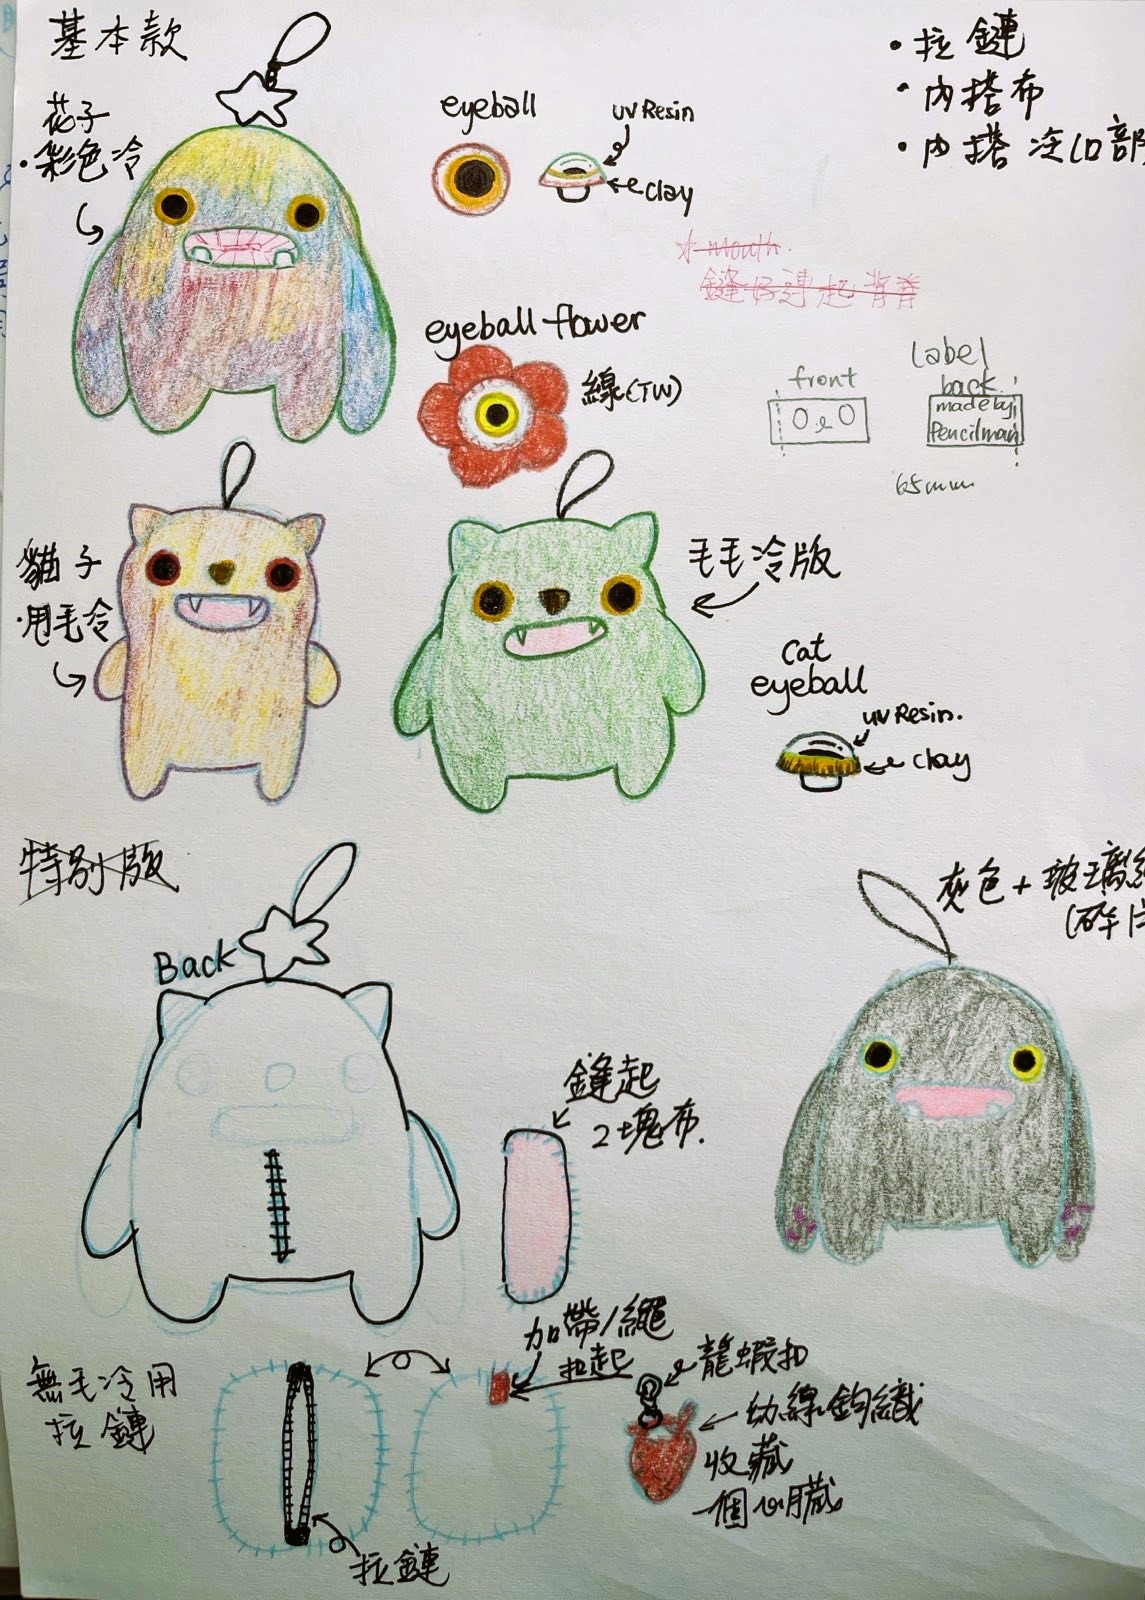 基本款
花子
·彩色冷
eyeball
uv Resin
clay
·拉鏈
·內搭布
·內搭 冷口部
mouth
鏠好連起背脊
eyeball flower
線(TW)
front
Label
back
made by
Pencilman
65mm
貓子
·甩毛冷
毛毛冷版
cat
eyeball
uv Resin.
clay
特別版
Back
灰色+玻璃
(碎片
鏠起
2塊布.
加帶/繩
扣起
龍蝦扣
幼線鈎織
收藏
一個心臟
無毛冷用
拉鏈
拉鏈